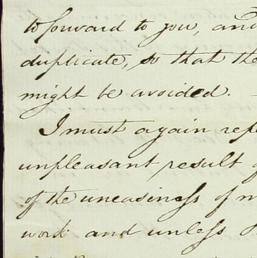 to forward to you, and
duplicate, so that the
might be avoided. —
I must again
unpleasant result
of the uneasiness of
work and unless